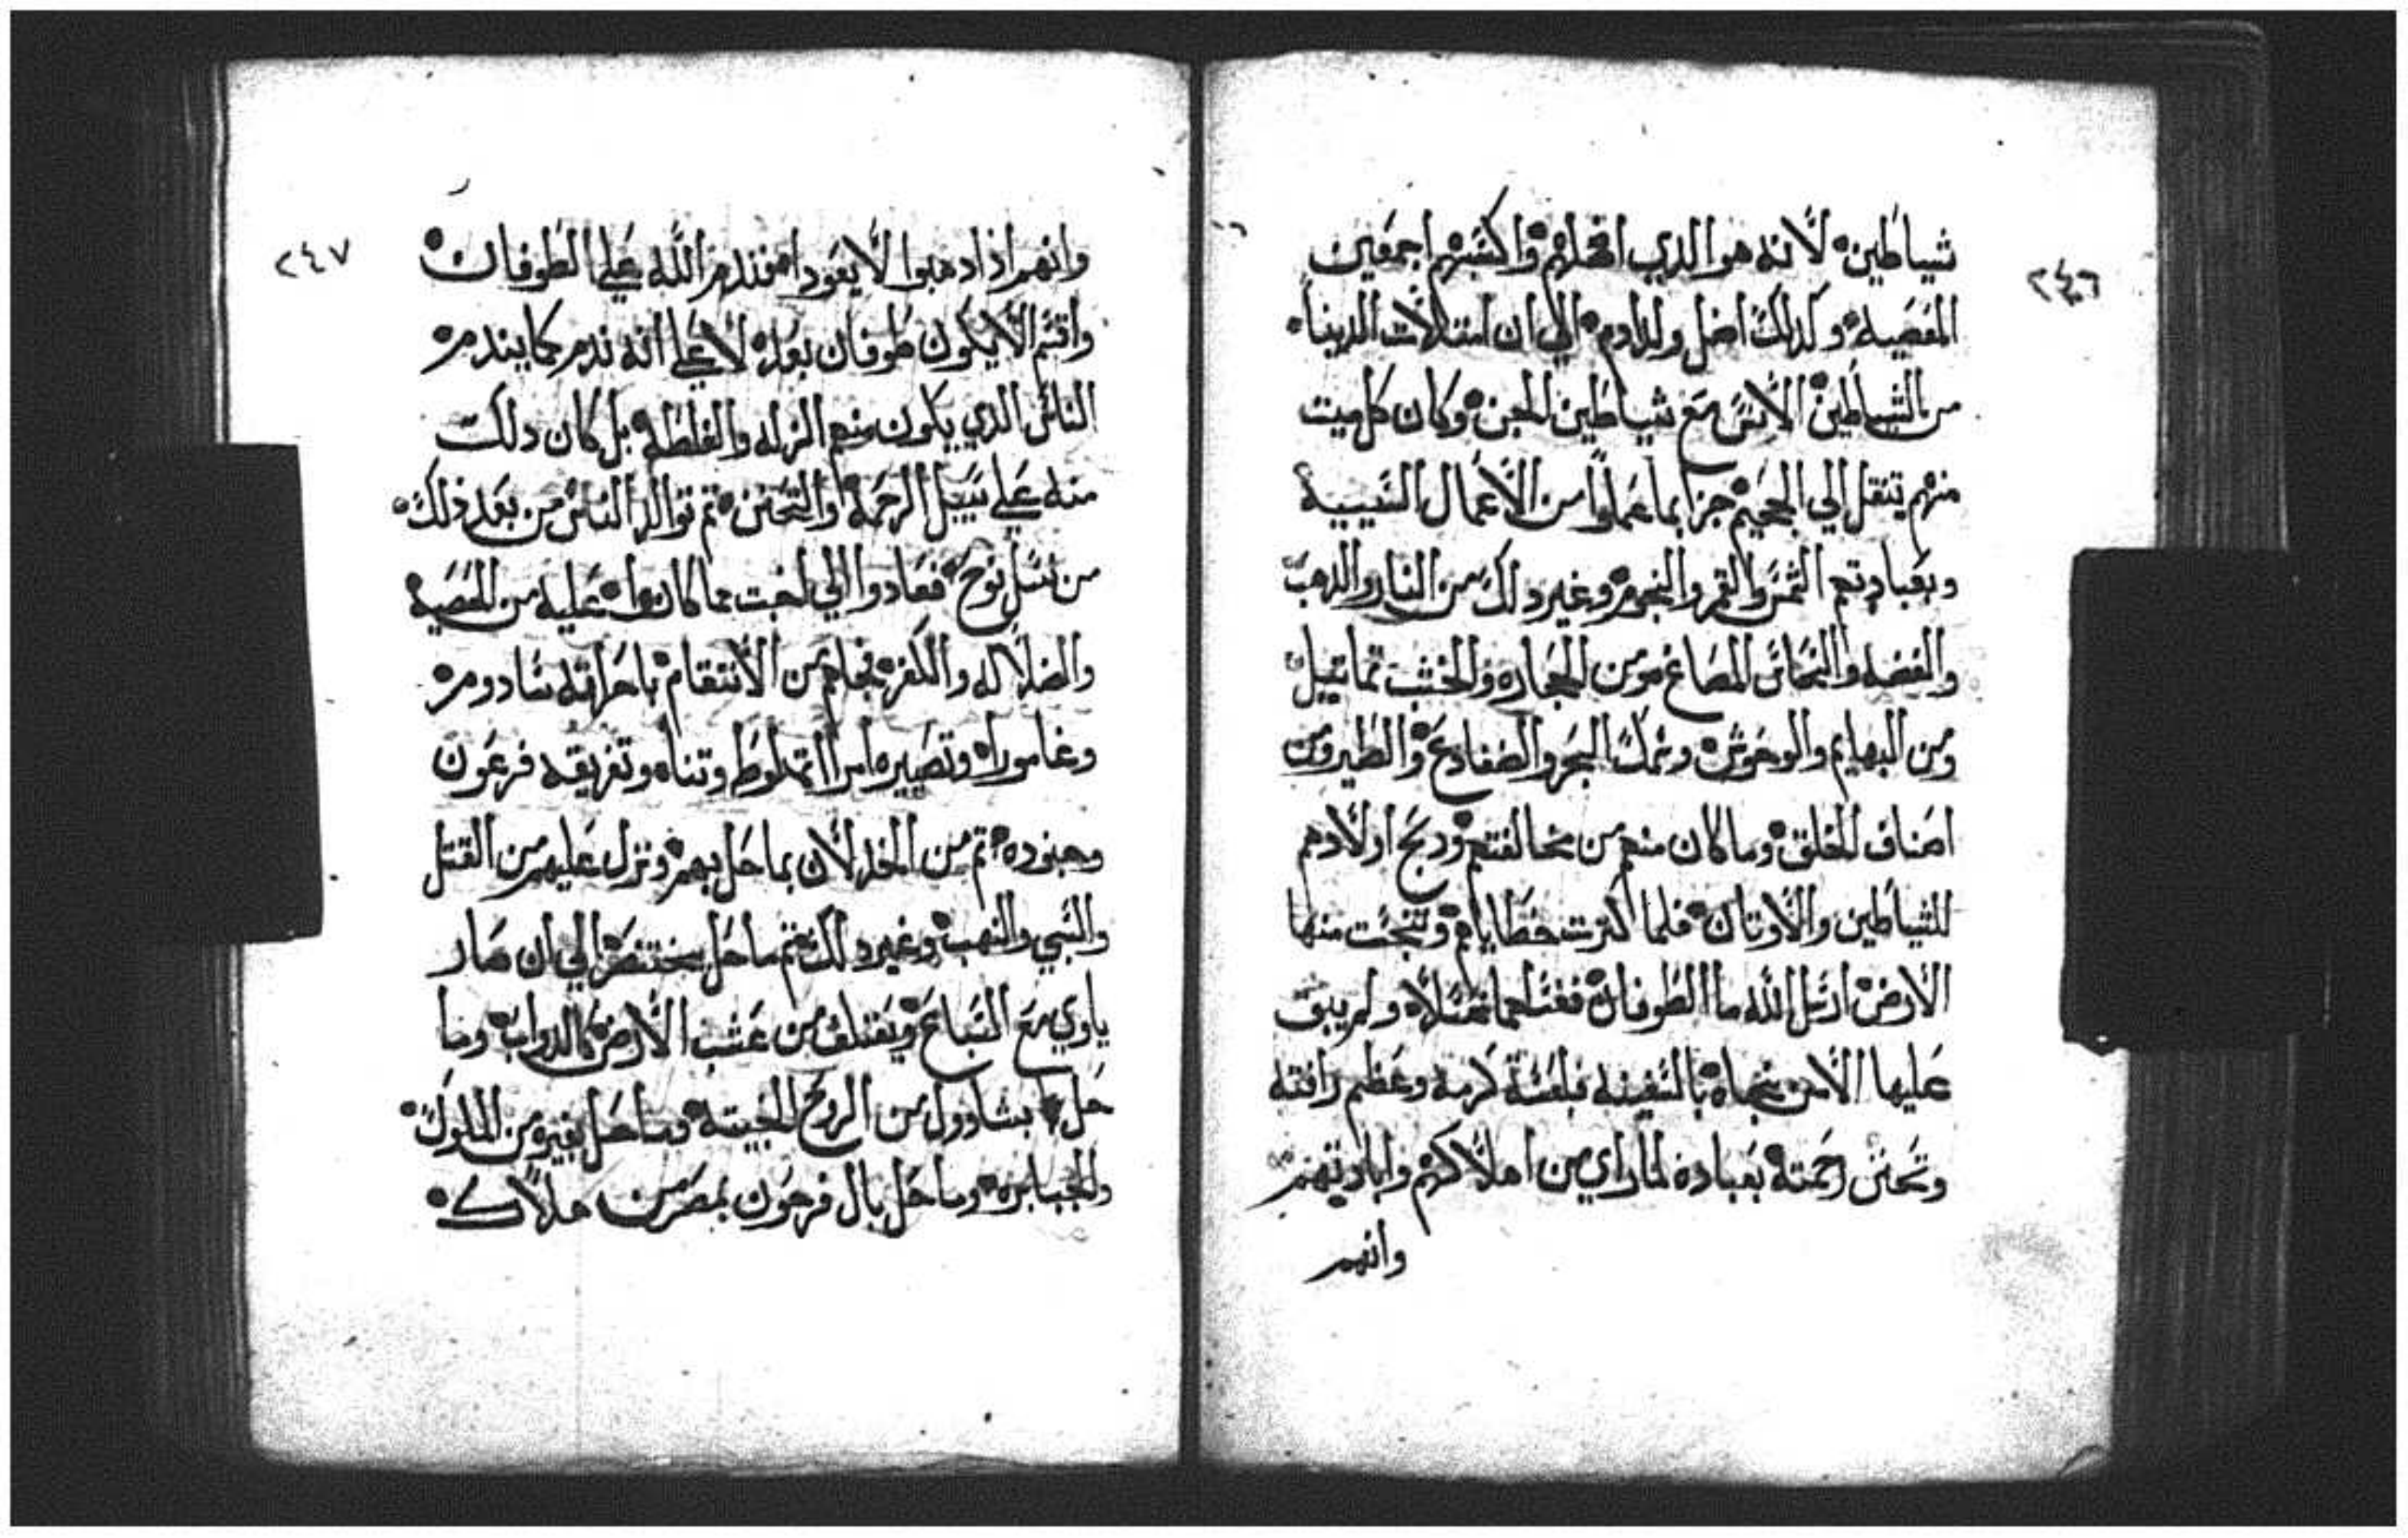 ٢٤٦
شياطين لانه هو الذي اضلهم واكسبهم اجمعين
المعصيه وكذلك اضل ولد ادم الي ان امتلات الدينا
من الشياطين الانس مع شياطين الجن وكان كل ميت
منهم يتنقل الي الجحيم جزا بما عملوا من الاعمال السييية
وبعبادتهم الشمس والقمر والنجوم وغير دلك من النار والدهب
والفضه والنحاس المصاغ ومن الحجاره والخشب تماتيل
ومن البهايم والوحوش وسمك البحر والضفادع والطير ومن
اصناف الخلق وما كان منهم من مخالفتهم ودبح اولادهم
للشياطين والاوتان فلما كترت خطاياهم وتنجست منها
الارض ارسل الله ما الطوفان فغسلها غسلا ولم يبق
عليها الا من نجاه بالسفينه فبلغته كرمه وعظم رافته
وتحنن رحمته بعباده لما راي من اهلاكهم وابادتهم
وانهم
٢٤٧
وانهم اذا دهبوا لا يعودا فندم الله علي الطوفان
واقسم الا يكون طوفان بعده لا علي انه ندم كما يندم
الناس الدي يكون منهم الزله والغلطه بل كان دلك
منه علي سبيل الرحمة والتحنن تم توالد الناس من بعد ذلك
من نسل نوح فعادوا الي اخبت مما كانوا عليه من المعصيه
والضلاله والكفر فجاهم من الانتقام باحراقه سادوم
وغامورا وتصييره امراة لوط وتناه وتغريقه فرعون
وجنوده تم من الخدلان بما حل بهم ونزل عليهم من القتل
والسبي والنهب وغير دلك تم ما حل ببختنصر الي ان صار
ياوي مع السباع ويعتلف من عشب الارض كالدواب وما
حل بشاوول من الروح الخبيته وما حصل بغيره من الملوك
والجبابره وما حل بال فرعون بمصر من هلاك